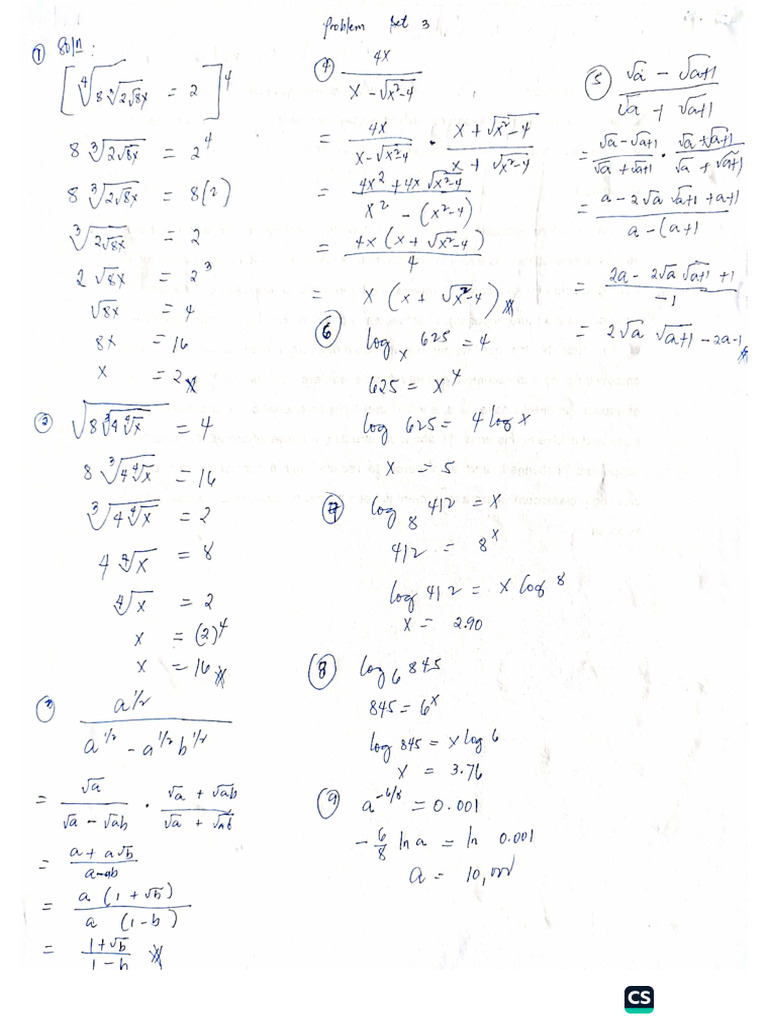 Problem Set 3
① Sol'n:
[∜(8∛(2√8x)) = 2]^4
8∛(2√8x) = 2^4
8∛(2√8x) = 8(2)
∛(2√8x) = 2
2√8x = 2^3
√8x = 4
8x = 16
x = 2
② √(8∛(4∜x)) = 4
8∛(4∜x) = 16
∛(4∜x) = 2
4∜x = 8
∜x = 2
x = (2)^4
x = 16
③ a^1/2 / (a^1/2 - a^1/2 b^1/2)
= √a / (√a - √ab) · (√a + √ab) / (√a + √ab)
= (a + a√b) / (a - ab)
= a (1 + √b) / a (1 - b)
= (1 + √b) / (1 - b)
④ 4x / (x - √(x²-4))
= 4x / (x - √(x²-4)) · (x + √(x²-4)) / (x + √(x²-4))
= (4x² + 4x√(x²-4)) / (x² - (x²-4))
= 4x (x + √(x²-4)) / 4
= x (x + √(x²-4))
⑥ log_x 625 = 4
625 = x^4
log 625 = 4 log x
x = 5
⑦ log_8 412 = x
412 = 8^x
log 412 = x log 8
x = 2.90
⑧ log_6 845
845 = 6^x
log 845 = x log 6
x = 3.76
⑨ a^-6/8 = 0.001
-6/8 ln a = ln 0.001
a = 10,000
⑤ (√a - √a+1) / (√a + √a+1)
= (√a - √a+1) / (√a + √a+1) · (√a - √a+1) / (√a + √a+1)
= (a - 2√a √a+1 + a+1) / (a - (a+1)
= (2a - 2√a √a+1 + 1) / -1
= 2√a √a+1 - 2a - 1
CS